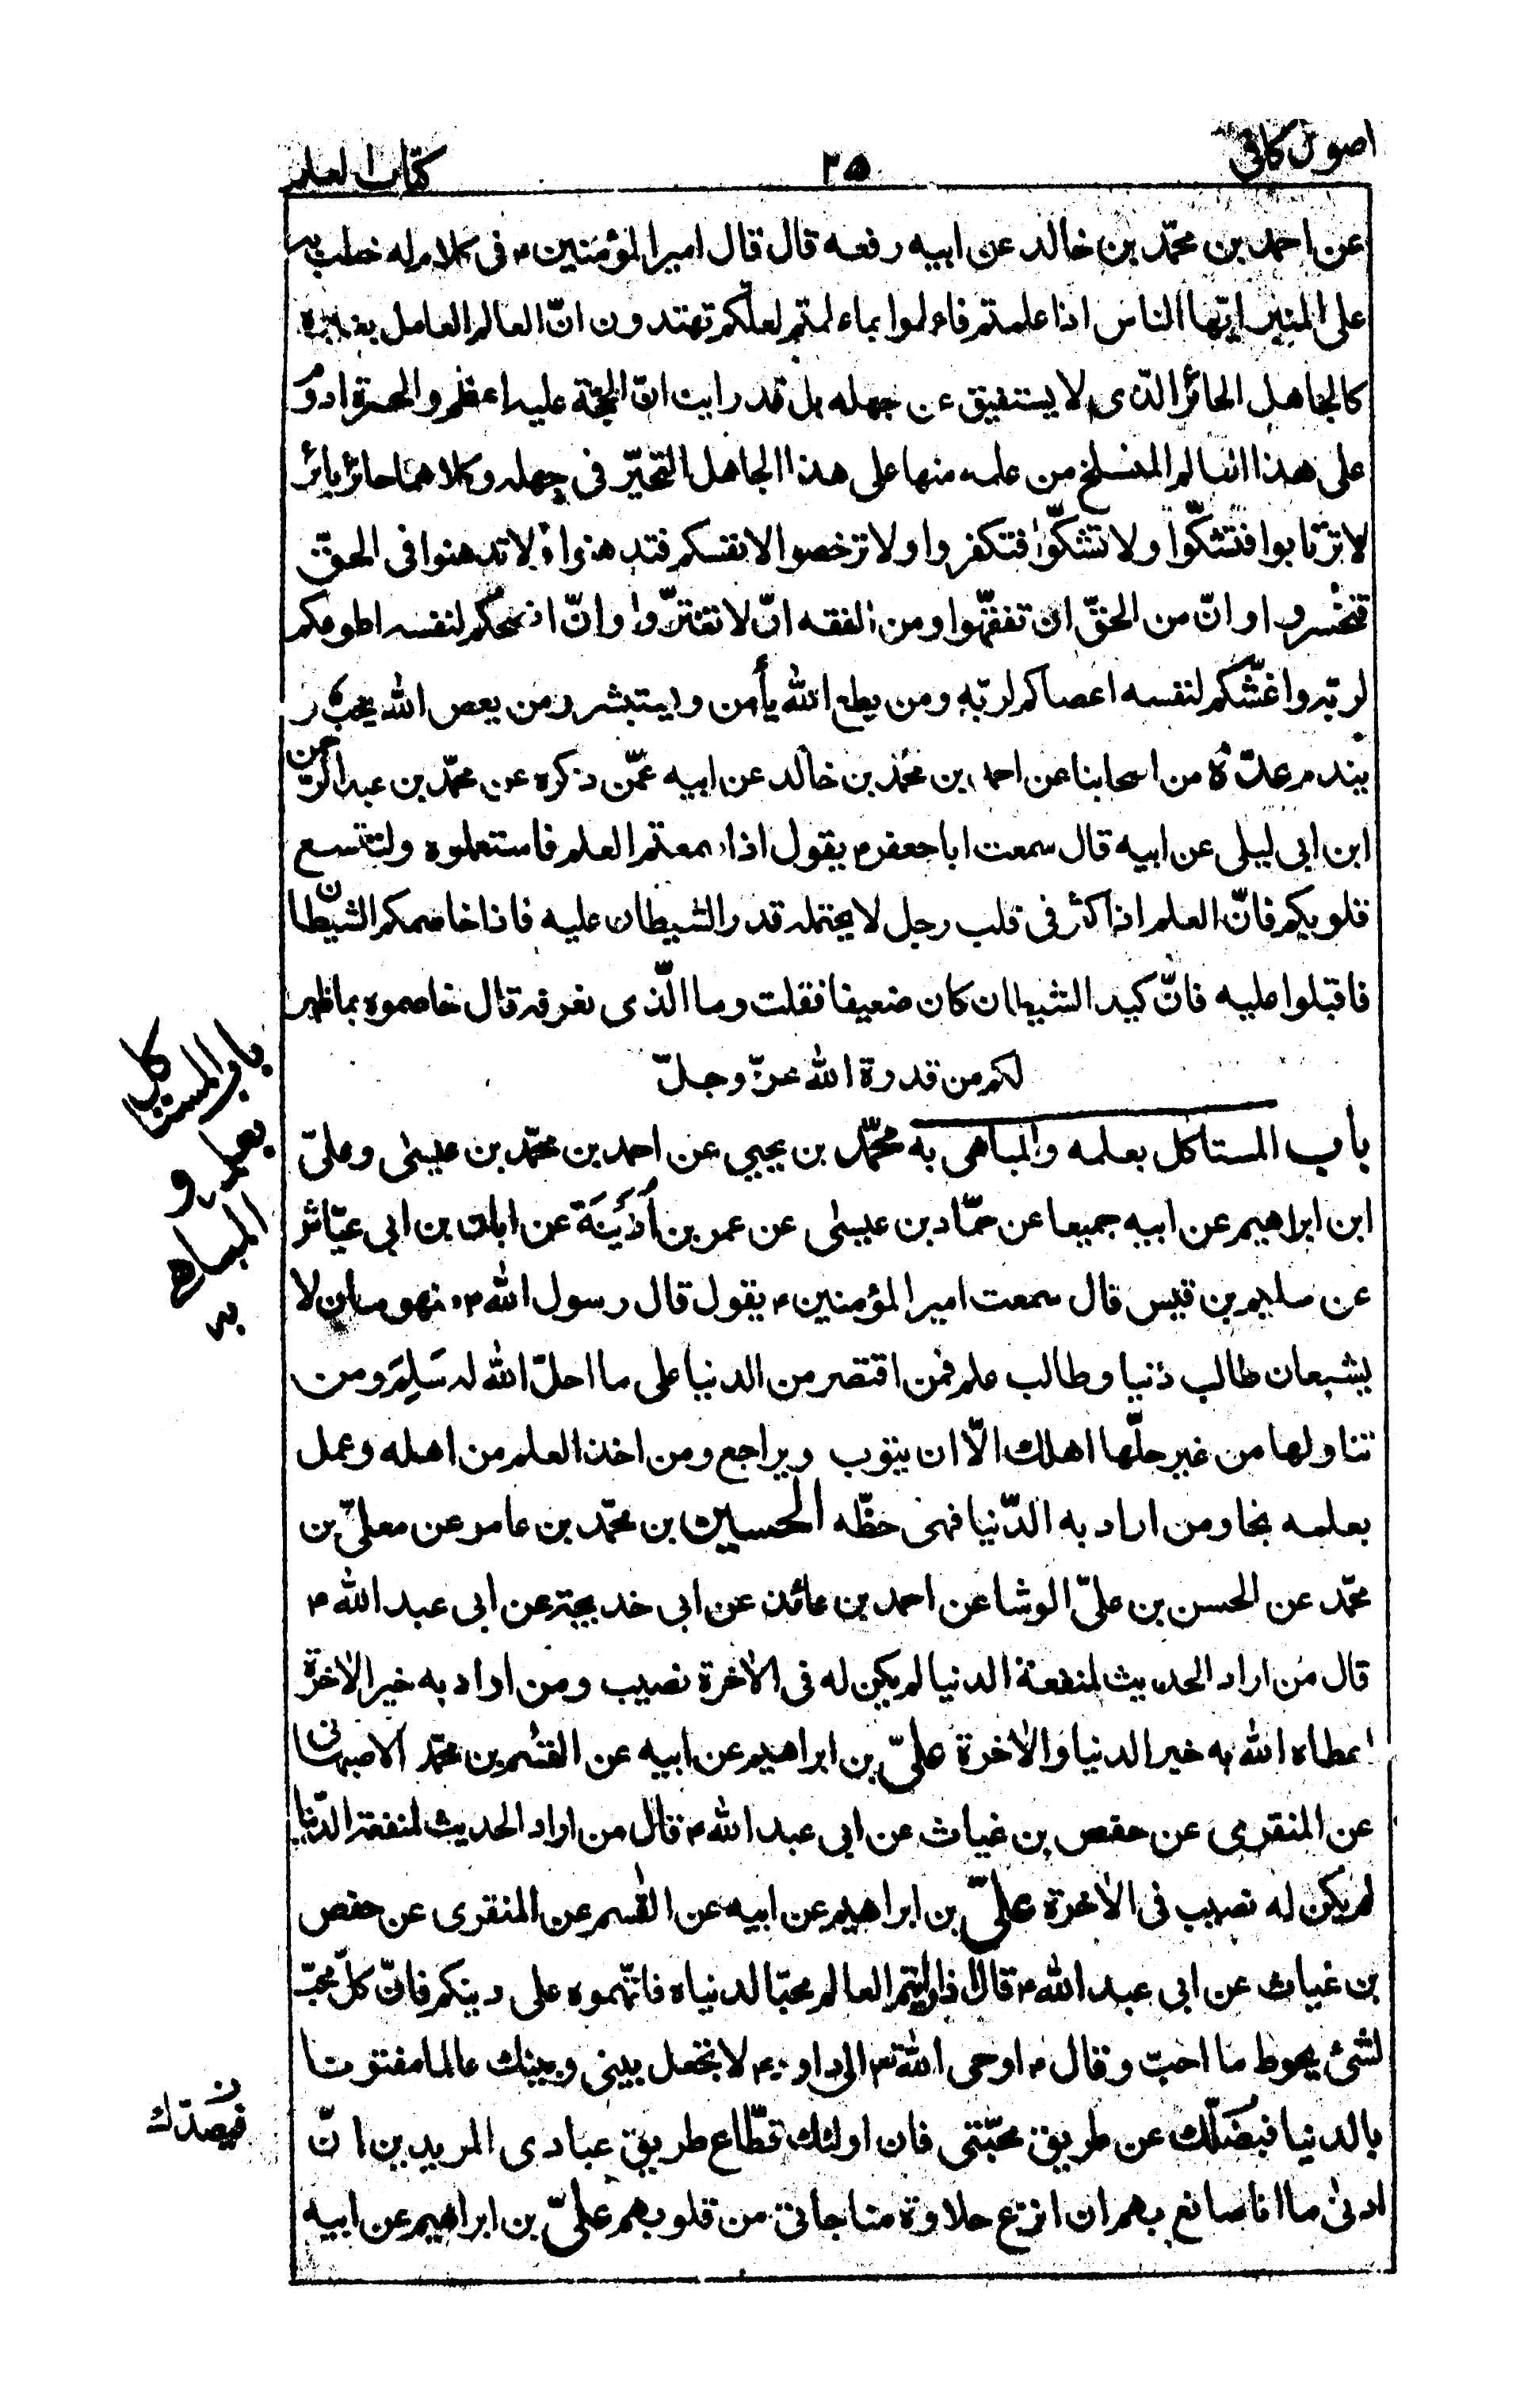 اصول كافى
٢٥
كتاب العلم
عن احمد بن محمّد بن خالد عن ابيه رفعه قال قال امير المؤمنين؏ فى كلام له خطب به
على المنبر ايّها الناس اذا علمتم فاعملوا بما علمتم لعلّكم تهتدون انّ العالم العامل بغيره
كالجاهل الحائر الّذى لا يستفيق عن جهله بل قد رايت انّ الحجّة عليه اعظم والحسرة ادوم
على هذا العالم المنسلخ من علمه منها على هذا الجاهل المتحيّر فى جهله وكلاهما حائر بائر
لا ترتابوا فتشكّوا ولا تشكّوا فتكفروا ولا ترخصوا لانفسكم فتدهنوا ولا تدهنوا فى الحقّ
فتخسروا وانّ من الحقّ ان تفقّهوا ومن الفقه ان لا تغترّوا وانّ انصحكم لنفسه اطوعكم
لربّه واغشّكم لنفسه اعصاكم لربّه ومن يطع الله يأمن ويستبشر ومن يعص الله يخب و
يندم عدّة من اصحابنا عن احمد بن محمّد بن خالد عن ابيه عمّن ذكره عن محمّد بن عبد الرّحمن
ابن ابى ليلى عن ابيه قال سمعت ابا جعفر؏ يقول اذا سمعتم العلم فاستعملوه ولتتّسع
قلوبكم فانّ العلم اذا كثر فى قلب رجل لا يحتمله قدر الشيطان عليه فاذا خاصمكم الشّيطان
فاقبلوا عليه فانّ كيد الشيطان كان ضعيفا فقلت وما الّذى نعرفه قال خاصموه بما ظهر
لكم من قدرة الله عزّ وجلّ
باب المستاكل بعلمه والمباهى به محمّد بن يحيي عن احمد بن محمّد بن عيسٰى وعلىّ
ابن ابراهيم عن ابيه جميعا عن حمّاد بن عيسٰى عن عمر بن أُذَيْنَة عن ابان بن ابى عيّاش
عن سليم بن قيس قال سمعت امير المؤمنين؏ يقول قال رسول اللهؐ منهومان لا
يشبعان طالب دنيا وطالب علم فمن اقتصر من الدنيا على ما احلّ الله له سَلِمَ ومن
تناولها من غير حلّها اهلك الّا ان يتوب ويراجع ومن اخذ العلم من اهله وعمل
بعلمه نجا ومن اراد به الدّنيا فهى حظّه الحسين بن محمّد بن عامر عن معلىّ بن
محمّد عن الحسن بن علىّ الوشا عن احمد بن عائذ عن ابى خديجة عن ابى عبد الله؏
قال من اراد الحديث لمنفعة الدنيا لم يكن له فى الاٰخرة نصيب ومن اراد به خير الاٰخرة
اعطاه الله به خير الدنيا والاٰخرة علىّ بن ابراهيم عن ابيه عن القٰسم بن محمّد الاصبهانى
عن المنقرى عن حفص بن غياث عن ابى عبد الله؏ قال من اراد الحديث لمنفعة الدّنيا
لم يكن له نصيب فى الاٰخرة علىّ بن ابراهيم عن ابيه عن القٰسم عن المنقرى عن حفص
بن غياث عن ابى عبد الله؏ قال اذا رايتم العالم محبّا لدنياه فاتّهموه على دينكم فانّ كلّ محبّ
لشئ يحوط ما احبّ وقال؏ اوحى الله تع الى داود؏ لا تجعل بينى وبينك عالما مفتونا
بالدنيا فيضلّك عن طريق محبّتى فان اولئك قطّاع طريق عبادى المريدين انّ
ادنىٰ ما انا صانع بهم ان انزع حلاوة مناجاتى من قلوبهم علىّ بن ابراهيم عن ابيه
باب المستاكل
بعلمه و
المباهى
به
فيصدّك ن